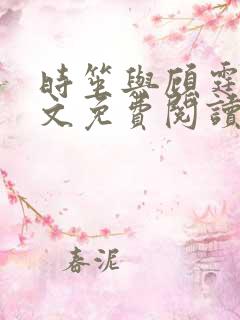 時笙與顧霆
文免費閱讀
春泥